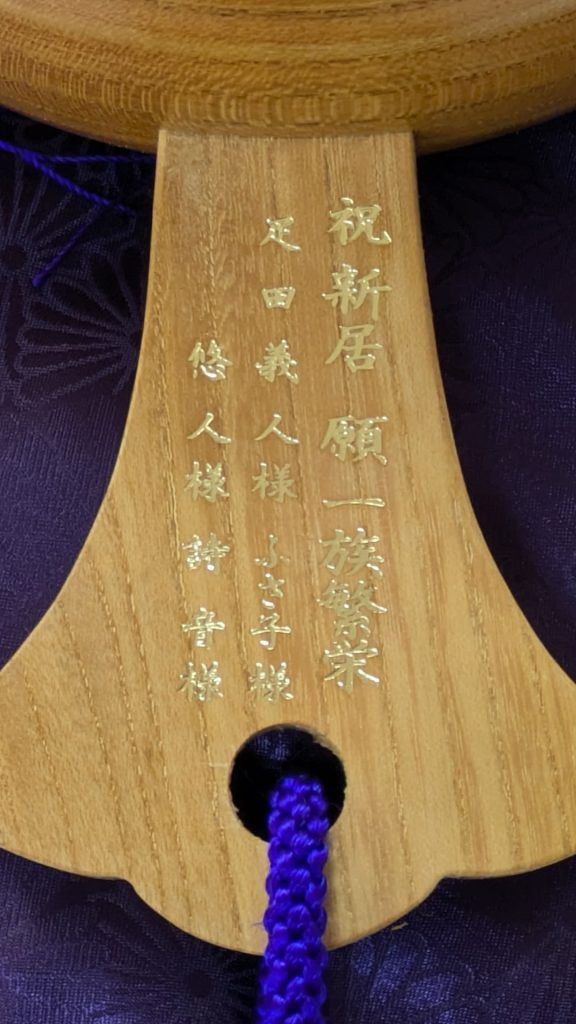 祝新居 願一族繁栄
足田義人様 ふさ子様
悠人様 詩音様